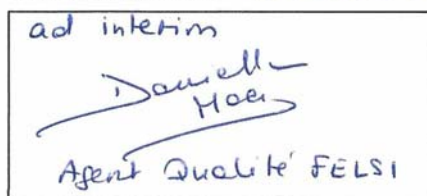 ad interim
Danielle
Agent Qualité FELSI